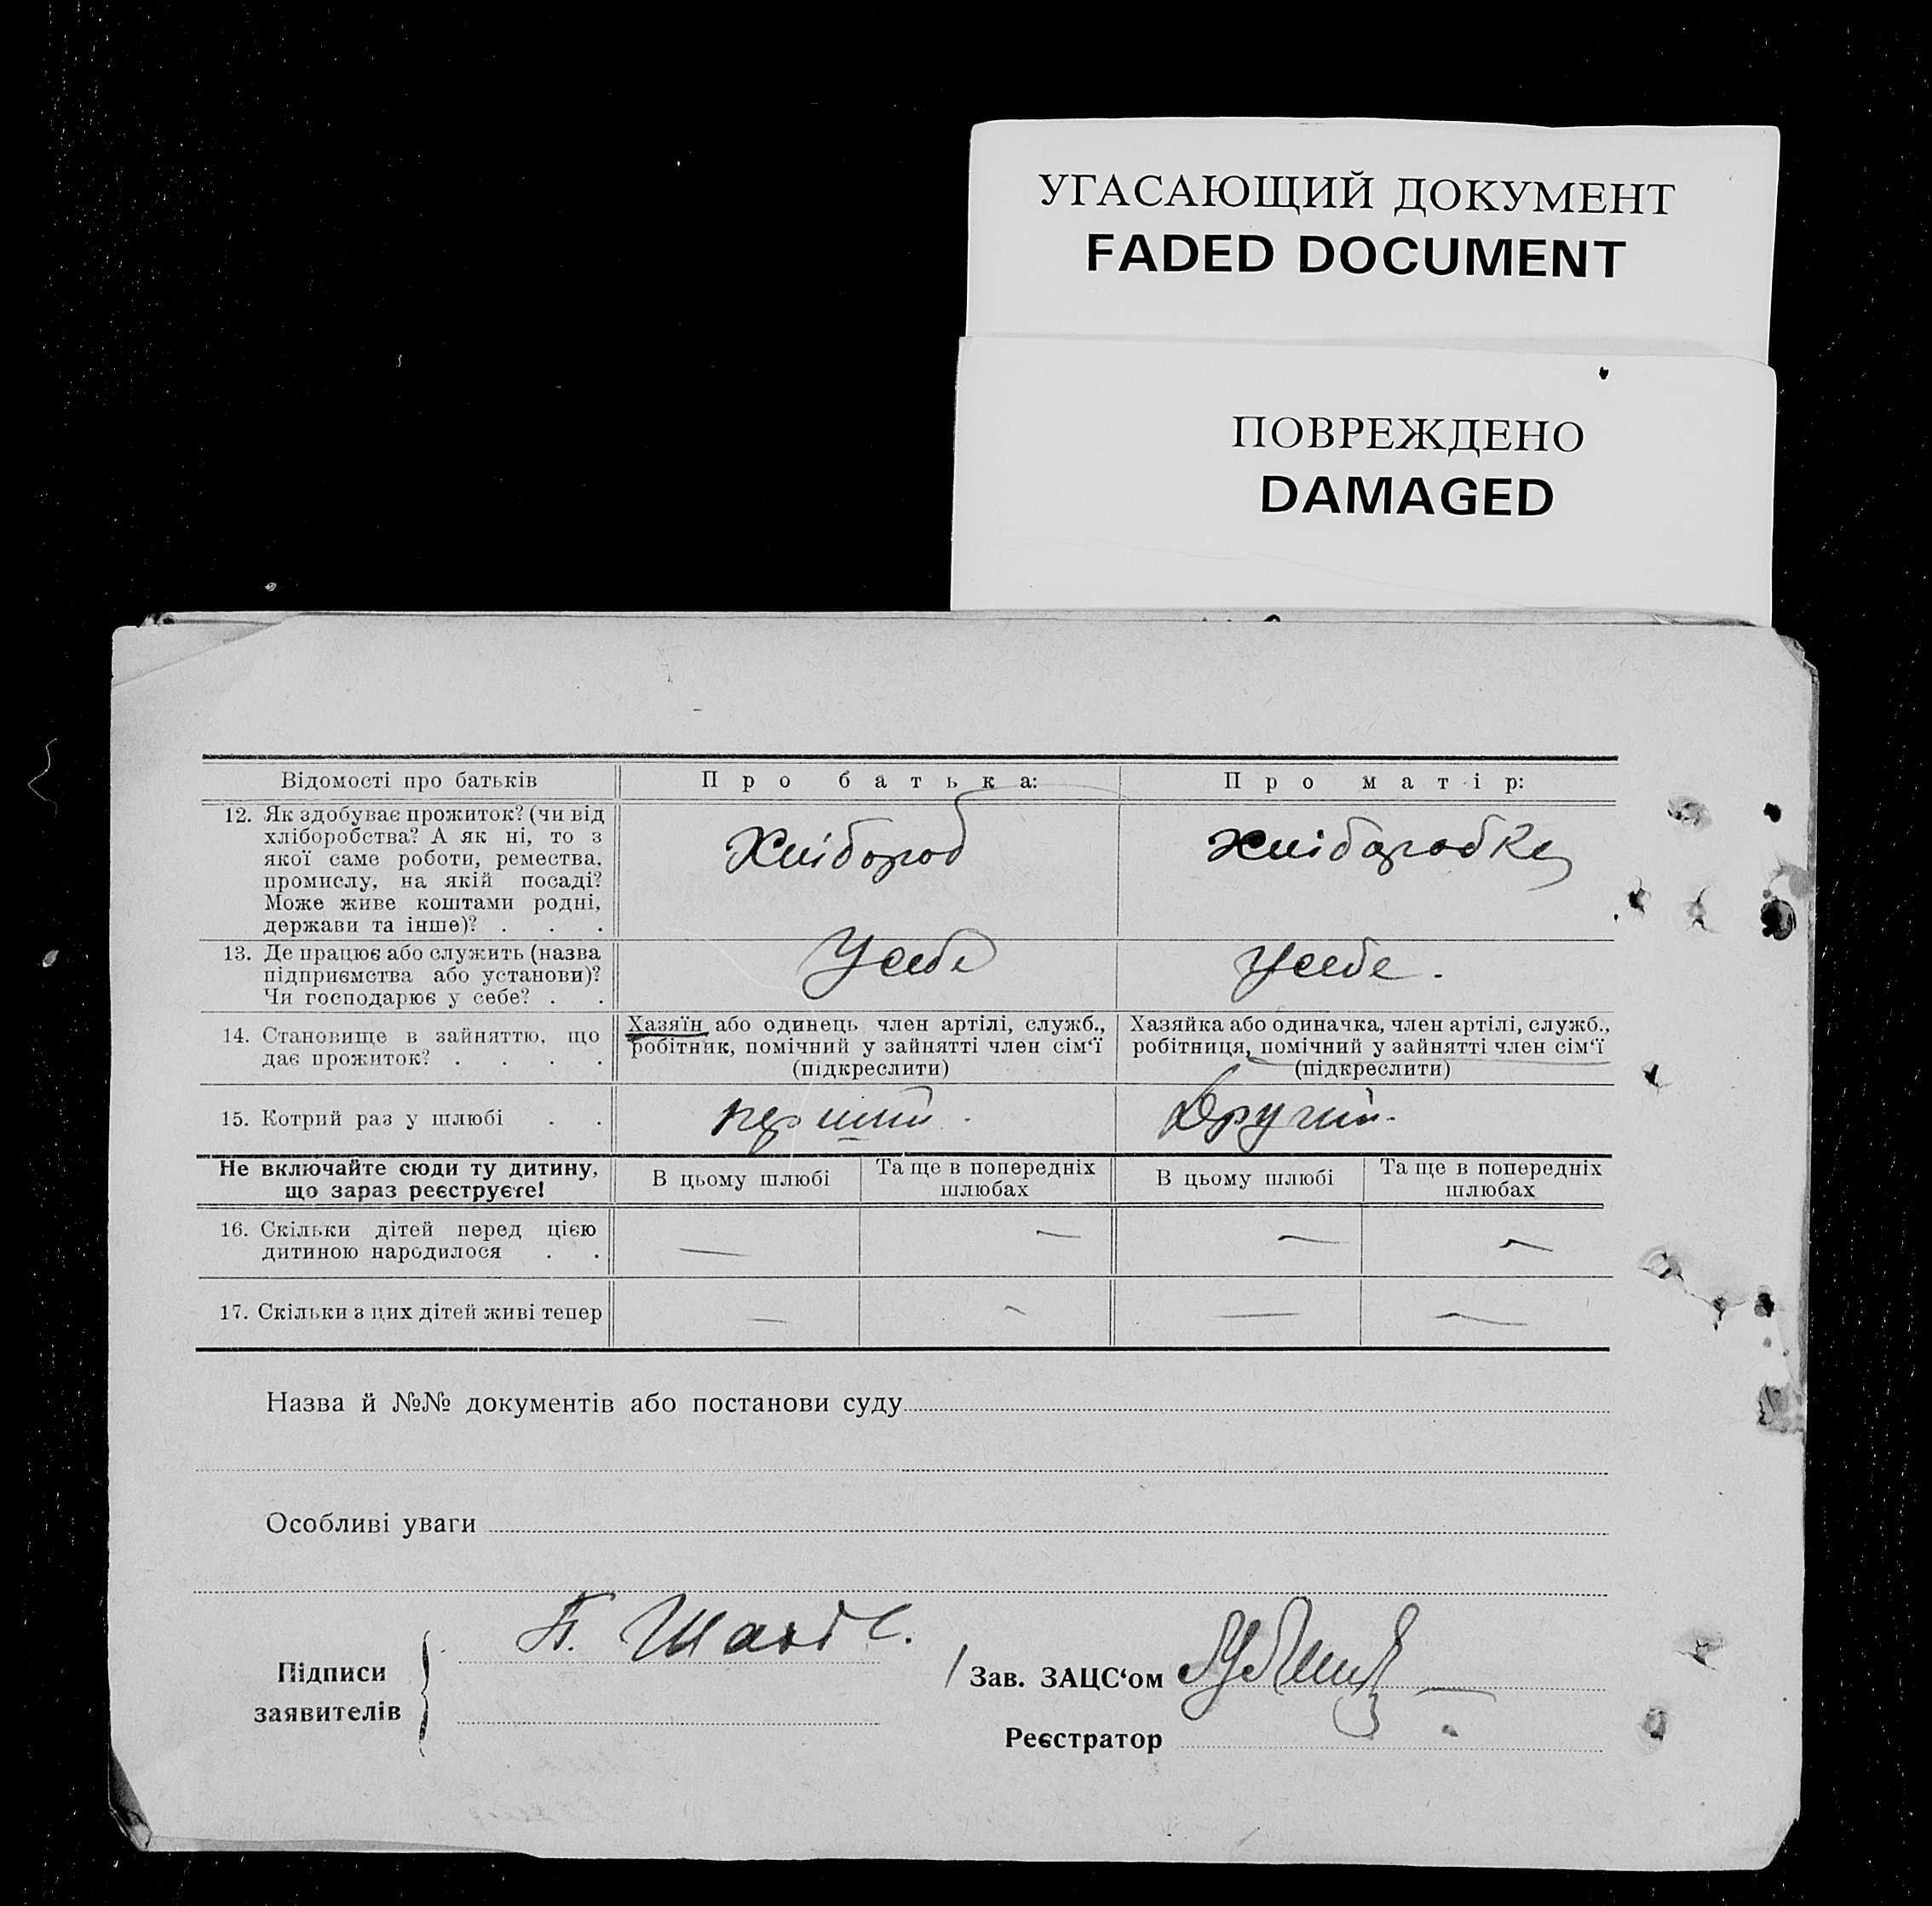 УГАСАЮЩИЙ ДОКУМЕНТ
FADED DOCUMENT
ПОВРЕЖДЕНО
DAMAGED
Відомості про батьків
Про батька:
Про матір:
12. Як здобуває прожиток? (чи від
хліборобства? А як ні, то з
якої саме роботи, ремества,
промислу, на якій посаді?
Може живе коштами родні,
держави та інше)? . . .
Хлібороб
хліборобка
13. Де працює або служить (назва
підприємства або установи)?
Чи господарює у себе? . .
У себе
У себе.
14. Становище в зайняттю, що
дає прожиток? . . . .
Хазяїн або одинець член артілі, служб.,
робітник, помічний у зайнятті член сім‘ї
(підкреслити)
Хазяйка або одиначка, член артілі, служб.,
робітниця, помічний у зайнятті член сім‘ї
(підкреслити)
15. Котрий раз у шлюбі . .
перший.
Другий.
Не включайте сюди ту дитину,
що зараз реєструєте!
В цьому шлюбі
Та ще в попередніх
шлюбах
В цьому шлюбі
Та ще в попередніх
шлюбах
16. Скільки дітей перед цією
дитиною народилося . .
— — — —
17. Скільки з цих дітей живі тепер
— — — —
Назва й №№ документів або постанови суду
Особливі уваги
Підписи
заявителів
Зав. ЗАЦС‘ом
Реєстратор